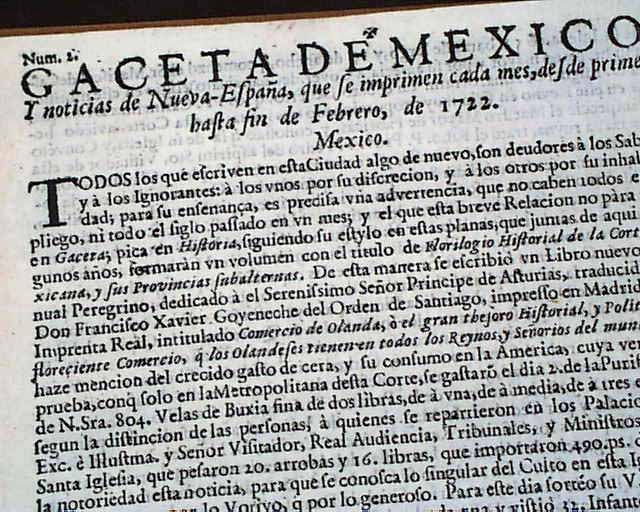 Num. 2.
GACETA DE MEXICO
Y noticias de Nueva-España, que se imprimen cada mes, desde prime
hasta fin de Febrero, de 1722.
Mexico.
TODOS los que escriven en esta Ciudad algo de nuevo, son deudores à los Sab
y à los Ignorantes: à los vnos por su discrecion, y à los otros por su inhal
dad; para su enseñança, es precisa vna advertencia, que no caben todos e
pliego, ni todo el siglo passado en vn mes; y el que esta breve Relacion no pàra
en Gaceta, pica en Historia, siguiendo su estylo en estas planas, que juntas de aqui
gunos años, formaràn vn volumen con el titulo de Florilogio Historial de la Cort
xicana, y sus Provincias subalternas. De esta manera se escribiò vn Libro nuevo
nual Peregrino, dedicado à el Serenissimo Señor Principe de Asturias, traducid
Don Francisco Xavier Goyeneche del Orden de Santiago, impresso en Madrid
Imprenta Real, intitulado Comercio de Olanda, ò el gran thesoro Historial, y Polit
floreciente Comercio, q los Olandeses tienen en todos los Reynos, y Señorios del mun
haze mencion del crecido gasto de cera, y su consumo en la America, cuya ver
prueba, conq solo en la Metropolitana desta Corte, se gastarõ el dia 2. de la Purif
de N. Sra. 804. Velas de Buxia fina de dos libras, de à vna, de à media, de à tres
segun la distincion de las personas, à quienes se repartieron en los Palacio
Exc. è Illustma. y Señor Visitador, Real Audiencia, Tribunales, y Ministros
Santa Iglesia, que pesaron 20. arrobas y 16. libras, que importaron 490. ps.
la notoriedad esta noticia, para que se conosca lo singular del Culto en esta
lo Votivo, q por lo generoso. Para este dia sorteò su V.
vna y vistiò 32. Infant